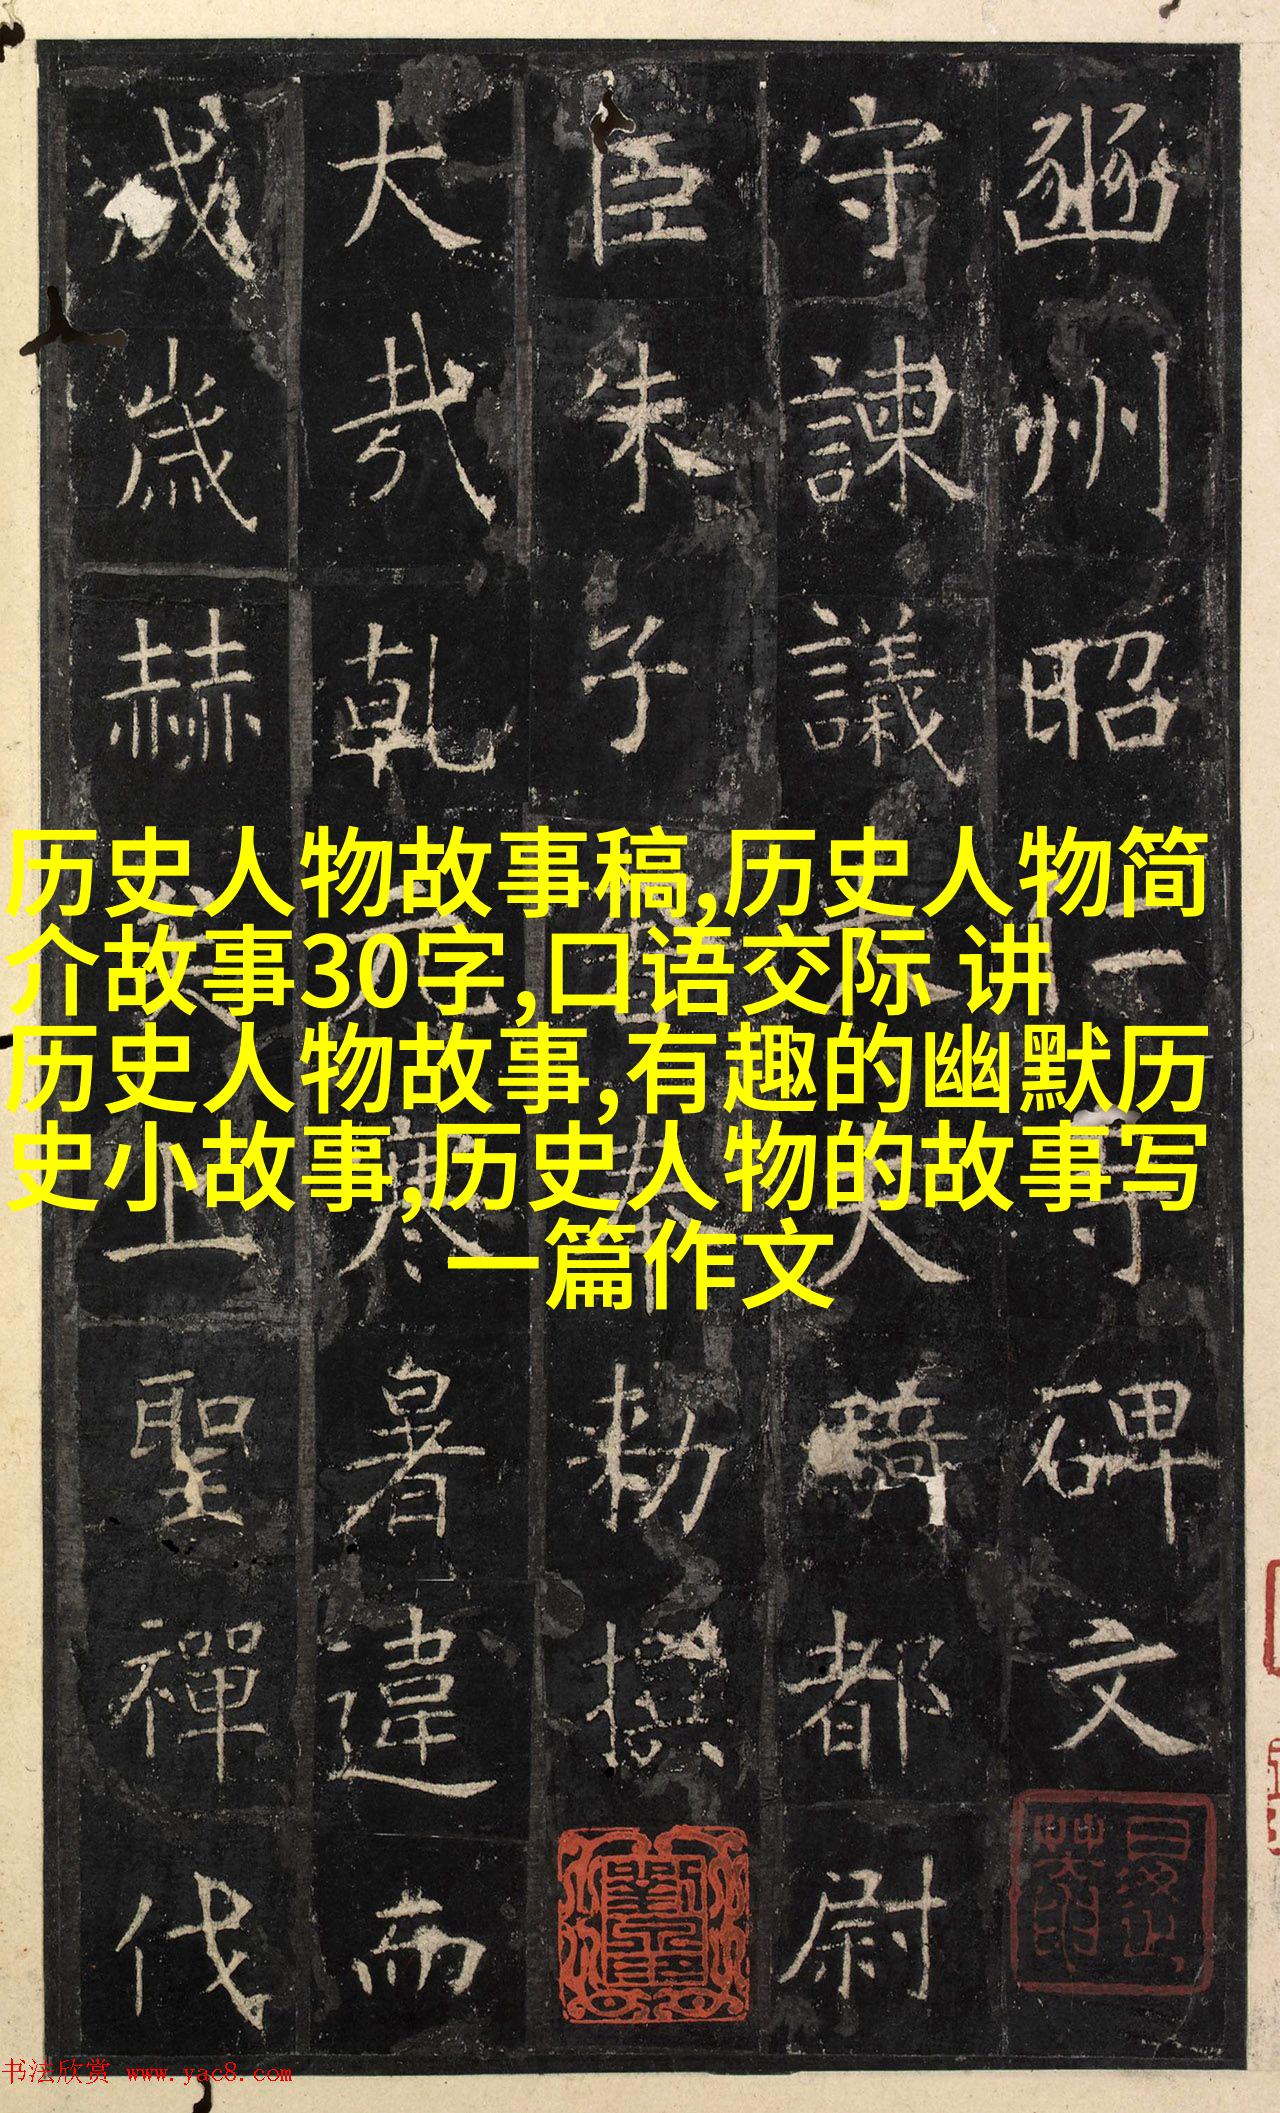 豳州昭仁寺碑文
守諫議大夫騎都尉
臣朱子奉勑撰
大哉乾元寒暑違而
成歲赫上聖禪代
历史人物故事稿,历史人物简
介故事30字,口语交际 讲
历史人物故事,有趣的幽默历
史小故事,历史人物的故事写
一篇作文
书法欣赏 www.yac8.com